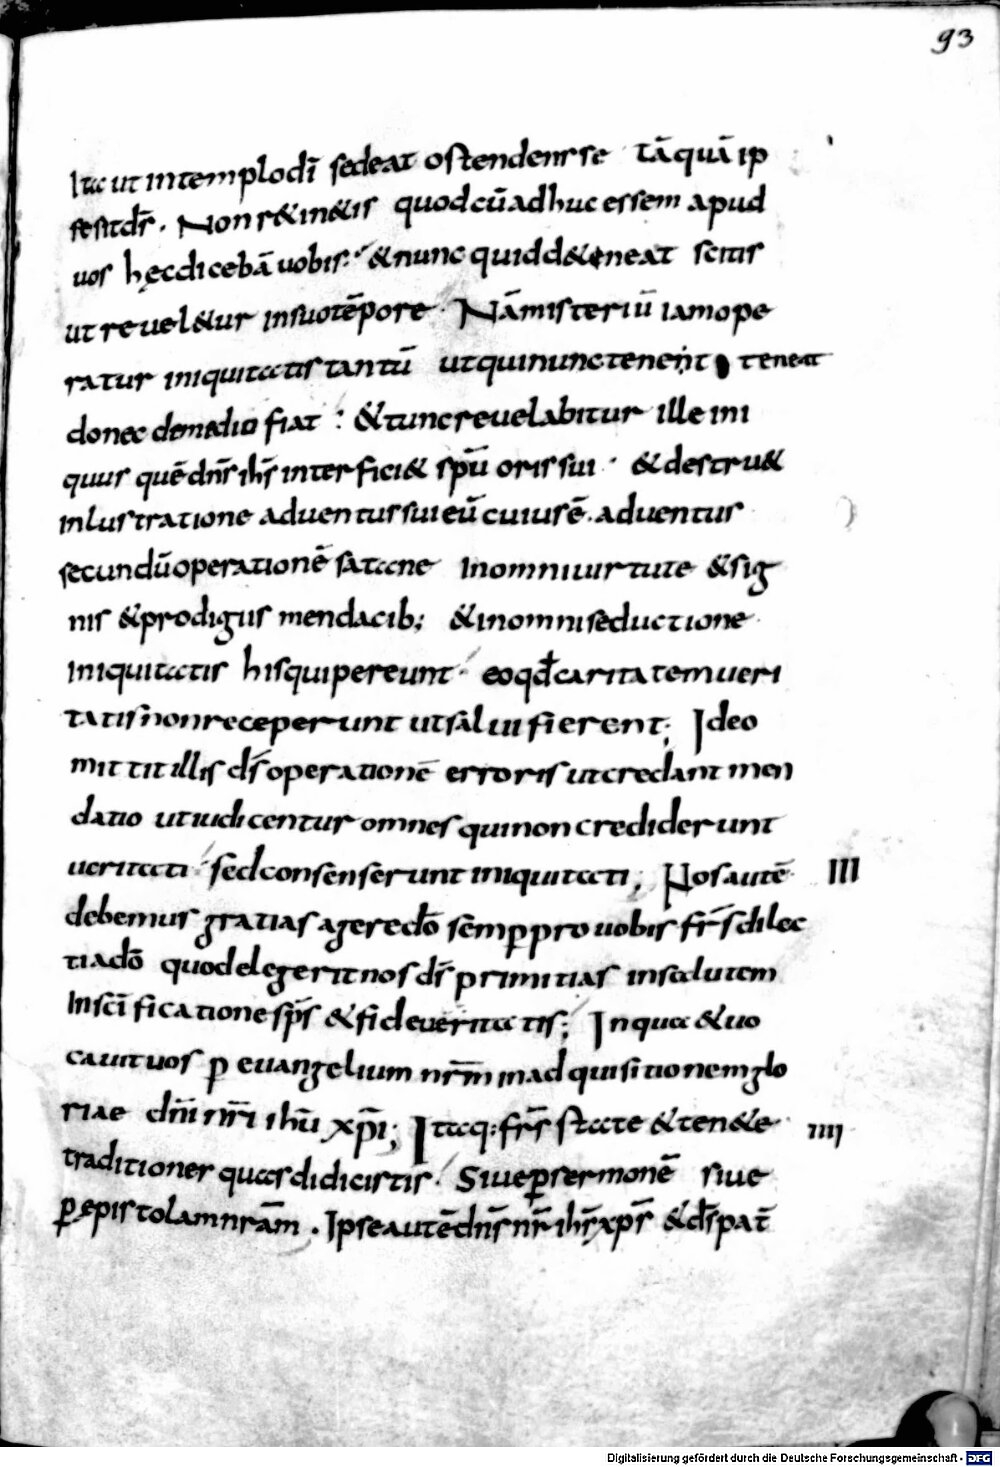 93
Ita ut intemplodī sedeat ostendens se tāquā ip
se sit dś. Non r&in&is quod cū adhuc essem apud
uos hęc dicebā uobis; &nunc quid d&eneat scitis
ut reuel&ur insuo tēpore. Nā misteriū iam ope
ratur iniquitatis tantū ut qui nunc tenent teneat
donec demedio fiat : &tunc reuelabitur ille ini
quus quē dnś ihś interfici& spū oris sui. &destru&
inlustratione aduentus sui eū cuius ē. aduentus
secundū operationē satane In omni uirtute &sig
nis &prodigiis mendacib; &in omni seductione
iniquitatis his qui pereunt. eo qđ caritatem ueri
tatis non receperunt ut salui fierent; Ideo
mittit illis dś operationē erroris ut credant men
datio ut iudicentur omnes qui non crediderunt
ueritati. sed consenserunt iniquitati; Nos autē III
debemus gratias agere dō semp pro uobis frś dilec
ti adō quod elegerit nos dś primitias insalutem
In scīficatione spś &fide ueritatis; In qua &uo
cauit uos p euangelium nrm̄ in adquisitionem glo
riae dnī nrī ihū xpī; Itaq: frś state &ten&e IIII
traditiones quas didicistis. Siue p sermonē siue
p epistolam nrām. Ipse autē dnś nr̄ ihś xpś &dś pat̄
Digitalisierung gefördert durch die Deutsche Forschungsgemeinschaft - DFG